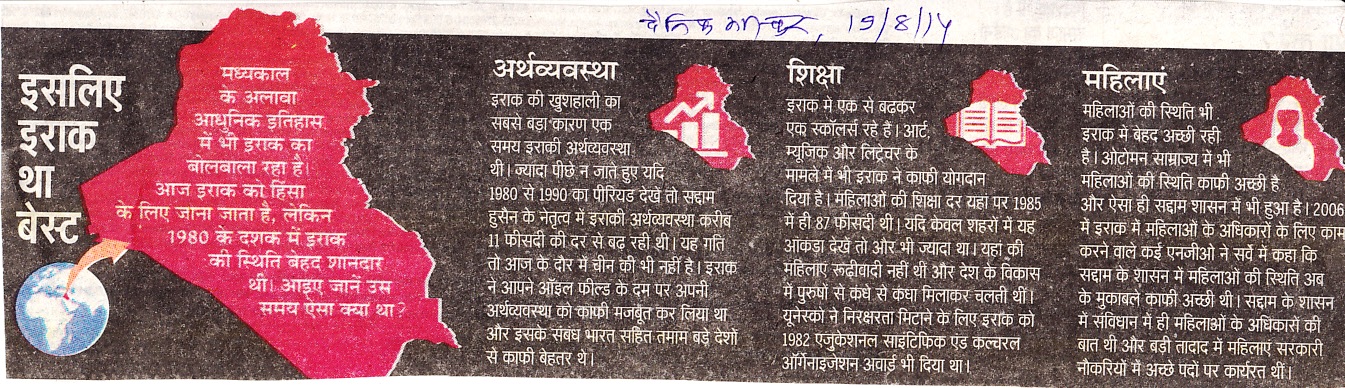 दैनिक भास्कर, 19/8/14
इसलिए
इराक
था
बेस्ट
मध्यकाल
के अलावा
आधुनिक इतिहास
में भी इराक का
बोलबाला रहा है।
आज इराक को हिंसा
के लिए जाना जाता है, लेकिन
1980 के दशक में इराक
की स्थिति बेहद शानदार
थी। आइए जानें उस
समय ऐसा क्या था?
अर्थव्यवस्था
इराक की खुशहाली का
सबसे बड़ा कारण एक
समय इराकी अर्थव्यवस्था
थी। ज्यादा पीछे न जाते हुए यदि
1980 से 1990 का पीरियड देखें तो सद्दाम
हुसैन के नेतृत्व में इराकी अर्थव्यवस्था करीब
11 फीसदी की दर से बढ़ रही थी। यह गति
तो आज के दौर में चीन की भी नहीं है। इराक
ने आपने ऑइल फील्ड के दम पर अपनी
अर्थव्यवस्था को काफी मजबूत कर लिया था
और इसके संबंध भारत सहित तमाम बड़े देशों
से काफी बेहतर थे।
शिक्षा
इराक में एक से बढकर
एक स्कॉलर्स रहे हैं। आर्ट,
म्यूजिक और लिट्रेचर के
मामले में भी इराक ने काफी योगदान
दिया है। महिलाओं की शिक्षा दर यहां पर 1985
में ही 87 फीसदी थी। यदि केवल शहरों में यह
आंकड़ा देखें तो और भी ज्यादा था। यहां की
महिलाएं रूढ़ीवादी नहीं थी और देश के विकास
में पुरुषों से कंधे से कंधा मिलाकर चलती थीं।
यूनेस्को ने निरक्षरता मिटाने के लिए इराक को
1982 एजुकेशनल साइंटिफिक एंड कल्चरल
ऑर्गेनाइजेशन अवार्ड भी दिया था।
महिलाएं
महिलाओं की स्थिति भी
इराक में बेहद अच्छी रही
है। ओटोमन साम्राज्य में भी
महिलाओं की स्थिति काफी अच्छी है
और ऐसा ही सद्दाम शासन में भी हुआ है। 2006
में इराक में महिलाओं के अधिकारों के लिए काम
करने वाले कई एनजीओ ने सर्वे में कहा कि
सद्दाम के शासन में महिलाओं की स्थिति अब
के मुकाबले काफी अच्छी थी। सद्दाम के शासन
में संविधान में ही महिलाओं के अधिकारों की
बात थी और बड़ी तादाद में महिलाएं सरकारी
नौकरियों में अच्छे पदों पर कार्यरत थीं।